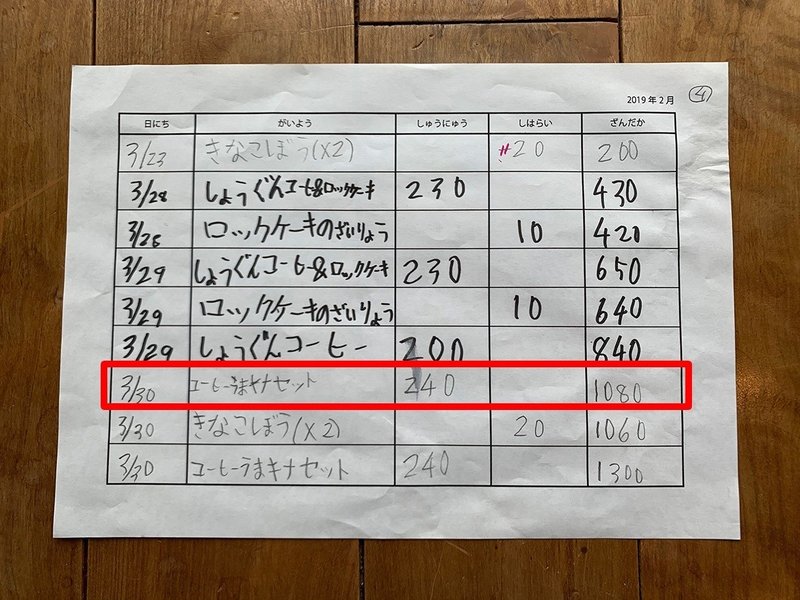 2019年2月 ④
日にち がいよう しゅうにゅう しはらい ざんだか
3/23 きなこぼう(×2) #20 200
3/28 しょうぐんコーヒー&ロックケーキ 230 430
3/28 ロックケーキのざいりょう 10 420
3/29 しょうぐんコーヒー&ロックケーキ 230 650
3/29 ロックケーキのざいりょう 10 640
3/29 しょうぐんコーヒー 200 840
3/30 コーヒーうまキナセット 240 1080
3/30 きなこぼう(×2) 20 1060
3/30 コーヒーうまキナセット 240 1300